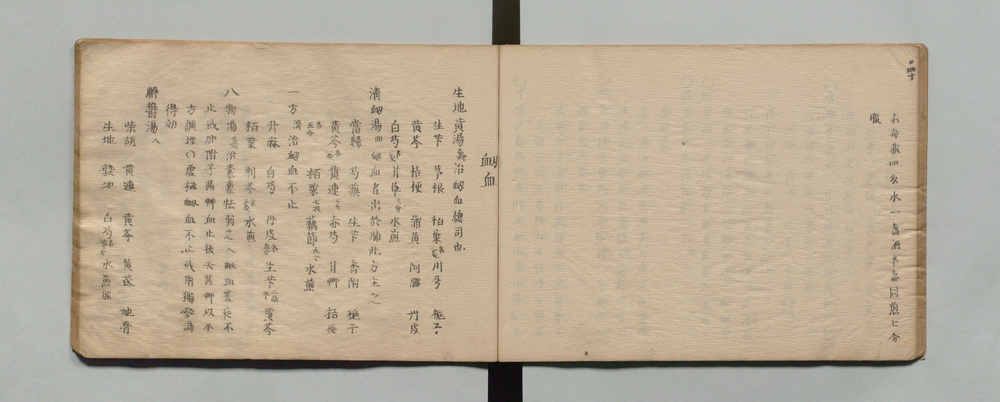 右每服四錢水一盞酒半盞同煎七分
服
衂血
生地黄湯 治衂血總司也
生芐 茅根 柏葉 川芎 梔子
黄芩 桔梗 蒲黄 阿膠 丹皮
白芍 甘艸 水煎
清衂湯 衂血者出於肺此方主之
當歸 芍藥 生芐 香附 梔子
黄芩 黄連 赤芍 甘艸 桔梗
各五分 柏葉 藕節 水煎
一方 治衂血不止
升麻 白芍 丹皮 生芐 黄芩
柏葉 水煎
八物湯 治素稟怯弱之人衂血不
止或加附子 血止後去 以本
方調理〇虚極衂血不止或用獨參湯
得効
解鬱湯
柴胡 黄連 黄芩 黄芪 地骨
生地 熟地 白芍 水煎服